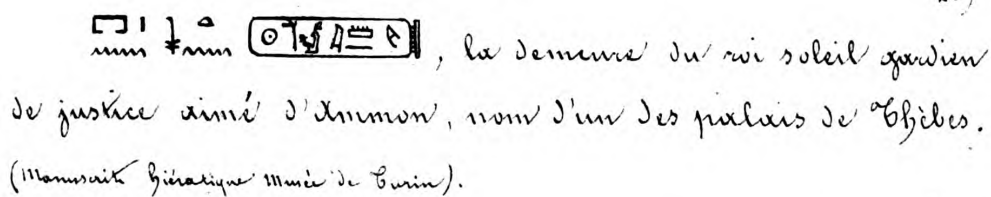 𓉐𓏤𓈖𓇓𓏏𓈖, la demeure du roi soleil gardien
de justice aimé d'Ammon, nom d'un des palais de Thèbes.
(Manuscrit hiératique Musée de Turin).